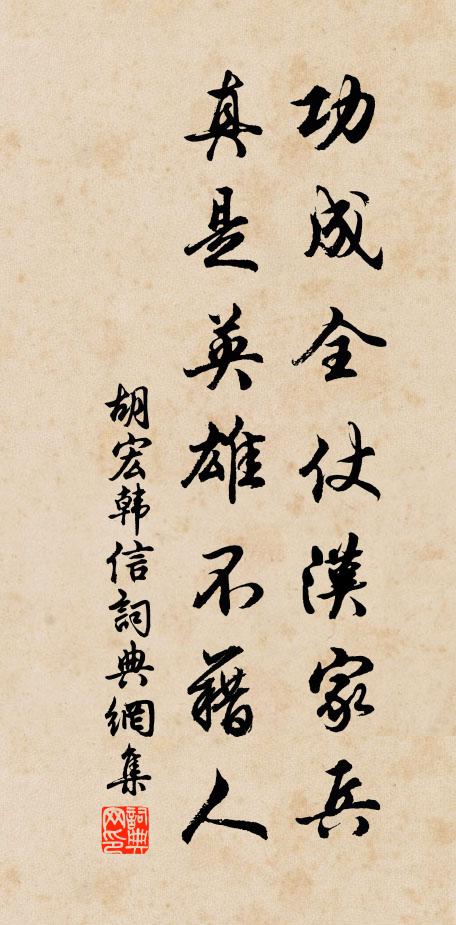 功成全仗漢家兵
真是英雄不藉人
胡宏韩信詞典網集
詞典网印